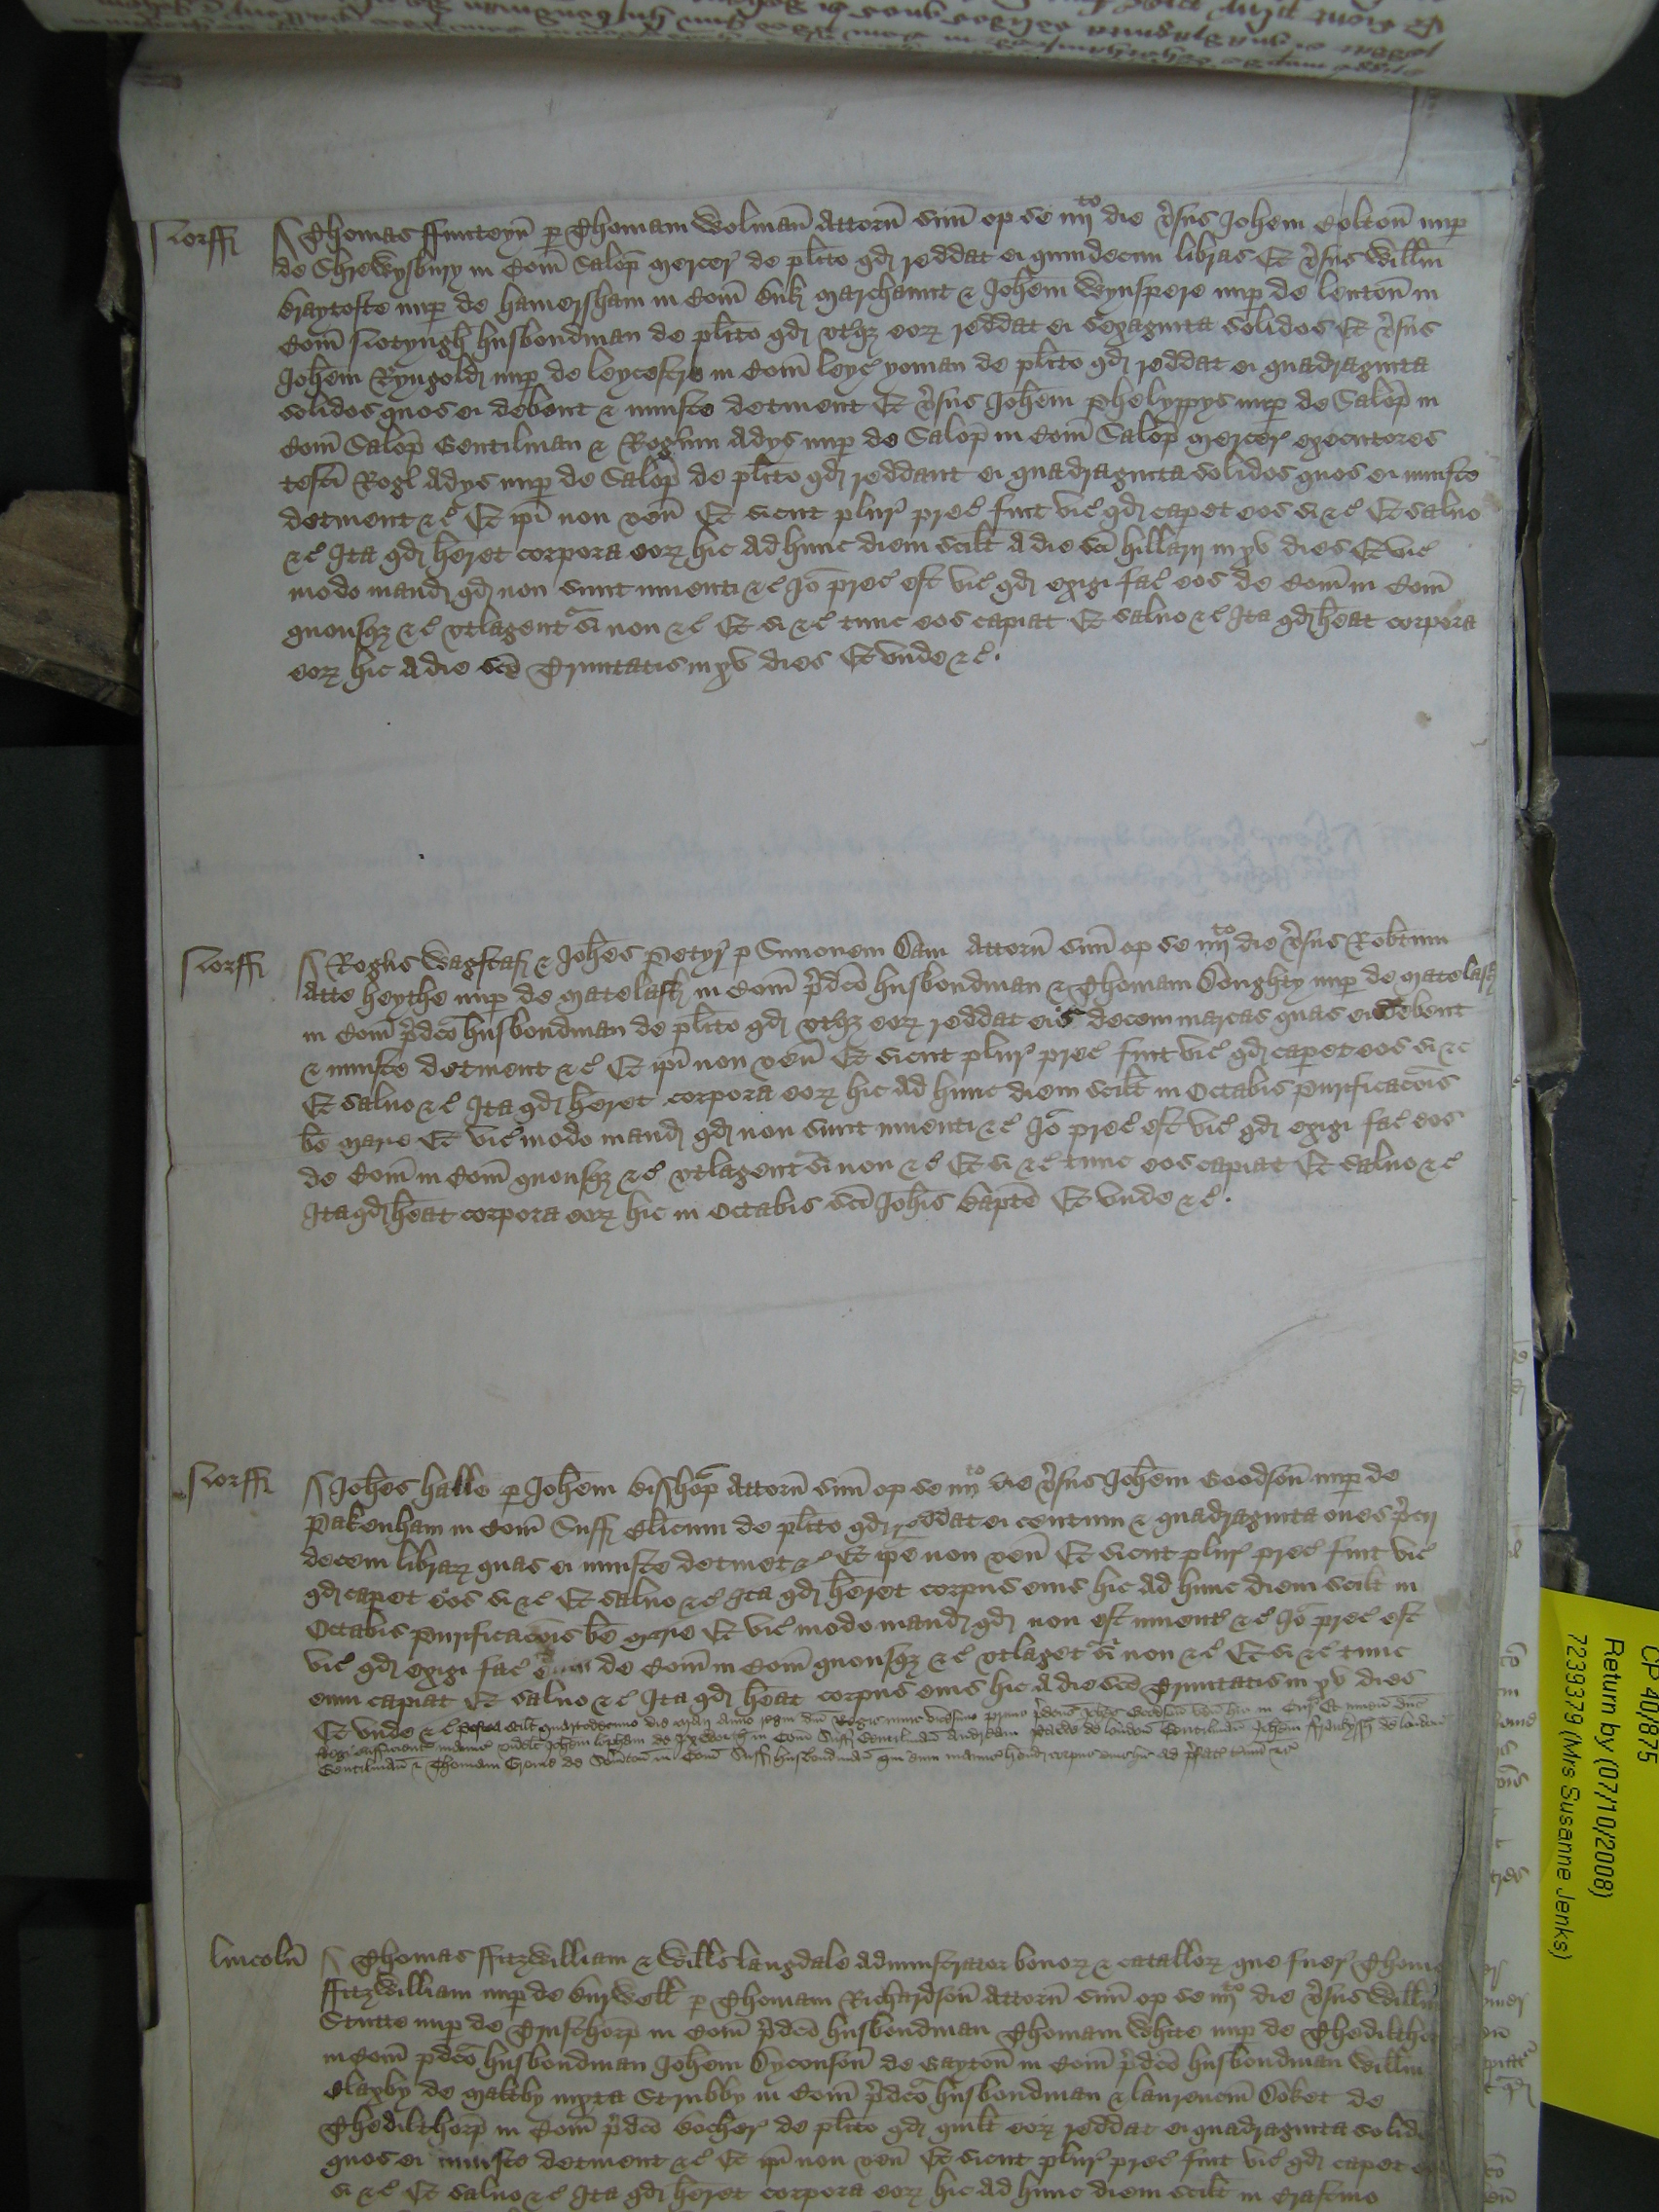 Norff Thomas ffyncteyn p Thomam Wolman Attorn suu op se iiijto die vsus Johem Colton nup
de Shrewysbury in Com Salop mercer de plito qd reddat ei quindecim libras Et vsus Willm
Braytofte nup de Hamersham in Com Buk marchaunt & Johem Wynspere nup de lenton in
Com Notyngh husbondman de plito qd utqz eoz reddat ei sexaginta solidos Et vsus
Johem Ryngold nup de leycestre in Com leyc yoman de plito qd reddat ei quadraginta
solidos quos ei debent & iniuste detinent Et vsus Johem Phelyppys nup de Salop in
Com Salop Gentilman & Rogum Adys nup de Salop in Com Salop mercer executores
testi Rogi Adys nup de Salop de plito qd reddant ei quadraginta solidos quos ei iniuste
detinent &c Et ipi non ven Et sicut plur prec fuit vic qd caperet eos si &c Et saluo
&c Ita qd heret corpora eoz hic Ad hunc diem scilt A die sci Hillarij in xv dies Et vic
modo mand qd non sunt inuenti &c Io prec est vic qd exigi fac eos de Com in Com
quousqz &c utlagent si non &c Et si &c tunc eos capiat Et saluo &c Ita qd heat corpora
eoz hic A die sce Trinitatis in xv dies Et unde &c
Norff Rogus Wagstaf & Johes Petyr p Simonem Dam Attorn suu op se iiijto die vsus Robtum
Atte heythe nup de matelask in Com pdco husbondman & Thomam Doughty nup de matelask
in Com pdco husbondman de plito qd utqz eoz reddat eis decem marcas quas ei debent
& iniuste detinent &c Et ipi non ven Et sicut plur prec fuit vic qd caperet eos si &c
Et saluo &c Ita qd heret corpora eoz hic Ad hunc diem scilt in Octabis Purificacois
be marie Et vic modo mand qd non sunt inuenti &c Io prec est vic qd exigi fac eos
de Com in Com quousqz &c utlagent si non &c Et si &c tunc eos capiat Et saluo &c
Ita qd heat corpora eoz hic in Octabis sci Johis Bapte Et unde &c
Norff Johes Halle p Johem Bisshop Attorn suu op se iiijto die vsus Johem Goodson nup de
Pakenham in Com Suff Clicum de plito qd reddat ei centum & quadraginta oues pcij
decem libraz quas ei iniuste detinet &c Et ipe non ven Et sicut plur prec fuit vic
qd caperet eos si &c Et saluo &c Ita qd heret corpus eius hic Ad hunc diem scilt in
Octabis Purificacois be marie Et vic modo mand qd non est inuent &c Io prec est
vic qd exigi fac eum de Com in Com quousqz &c utlaget si non &c Et si &c tunc
eum capiat Et saluo &c Ita qd heat corpus eius hic A die sce Trinitatis in xv dies
Et unde &c Postea scilt quartodecimo die maij Anno regni dni Regis nunc vicesimo primo pdcus Johes Goodson ven hic in Cur Et inuen dno
Regi sufficient manuc videlt Johem lopham de in Com Suff Gentilman Andream de london Gentilman Johem de london
Gentilman & Thomam de in Com Suff husbondman qui eum manuc hend corpus eius hic ad pfat tmi &c
lincoln Thomas ffitzwilliam & Wills langdale Administrator bonoz & catalloz que fuer Thome
ffitzwilliam nup de Burwell p Thomam Richardson Attorn suu op se iiijto die vsus Willm
Stutte nup de Trusthorp in Com pdco husbondman Thomam White nup de Thedilthorp
in Com pdco husbondman Johem Dyconson de Gayton in Com pdco husbondman Willm
Claxby de Maltby iuxta Strubby in Com pdco husbondman & laurencm Doket de
Thedilthorp in Com pdco bocher de plito qd quilt eoz reddat ei quadraginta solidos
quos ei iniuste detinent &c Et ipi non ven Et sicut plur prec fuit vic qd caperet
si &c Et saluo &c Ita qd heret corpora eoz hic Ad hunc diem scilt in Crastino
CP 40/875
Return by (07/10/2008)
7239379 (Mrs Susanne Jenks)